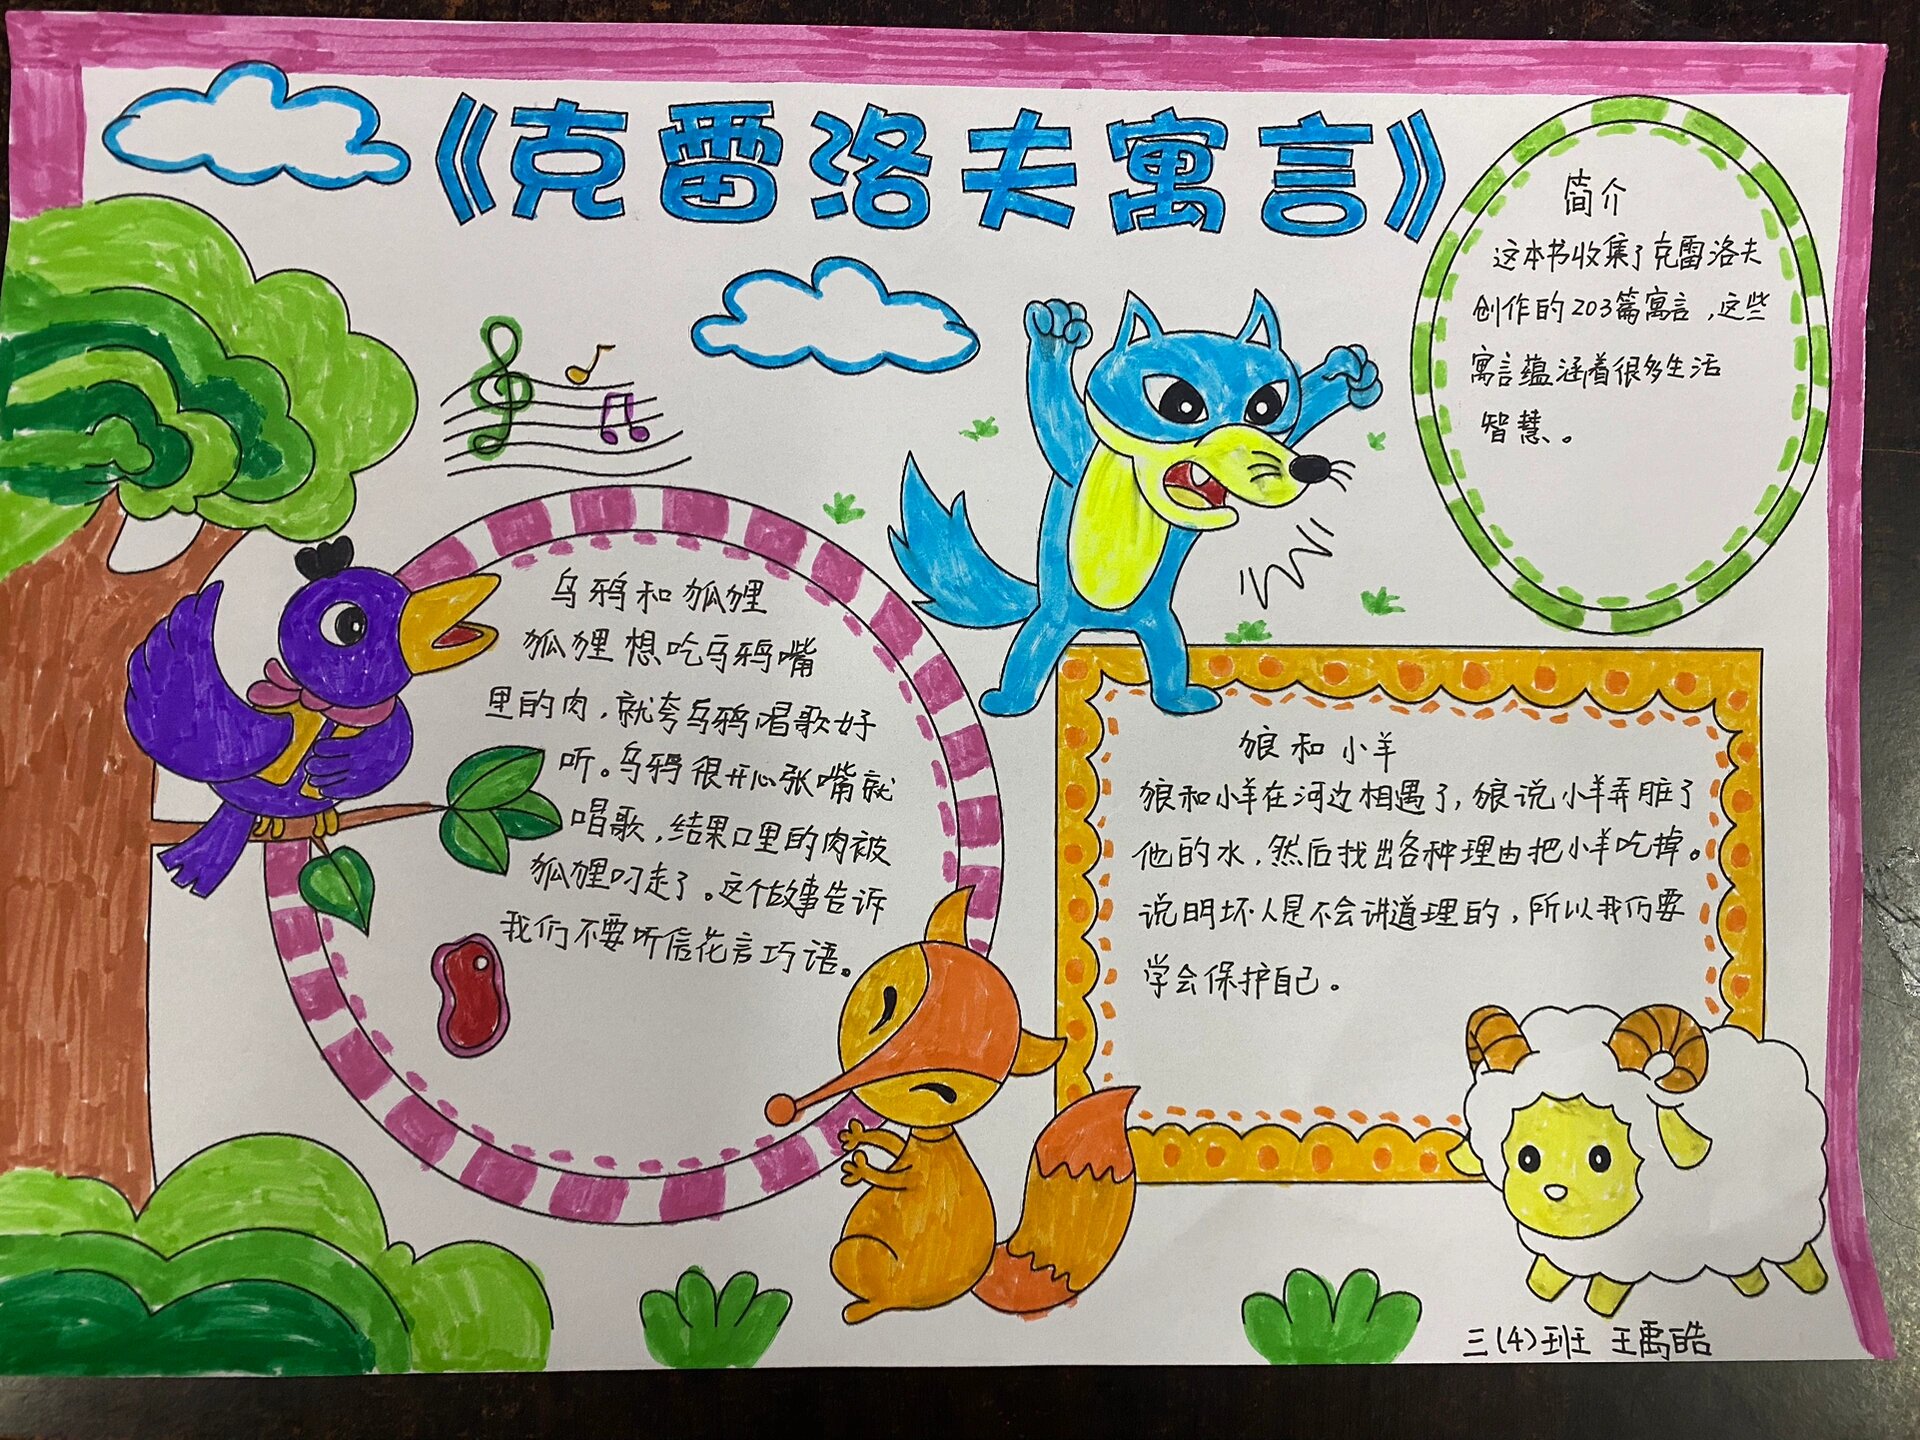 《克雷洛夫寓言》
简介
这本书收集了克雷洛夫
创作的203篇寓言，这些
寓言蕴涵着很多生活
智慧。
乌鸦和狐狸
狐狸想吃乌鸦嘴
里的肉，就夸乌鸦唱歌好
听。乌鸦很开心张嘴就
唱歌，结果口里的肉被
狐狸叼走了。这个故事告诉
我们不要听信花言巧语。
狼和小羊
狼和小羊在河边相遇了，狼说小羊弄脏了
他的水，然后找出各种理由把小羊吃掉。
说明坏人是不会讲道理的，所以我们要
学会保护自己。
三(4)班 王禹皓